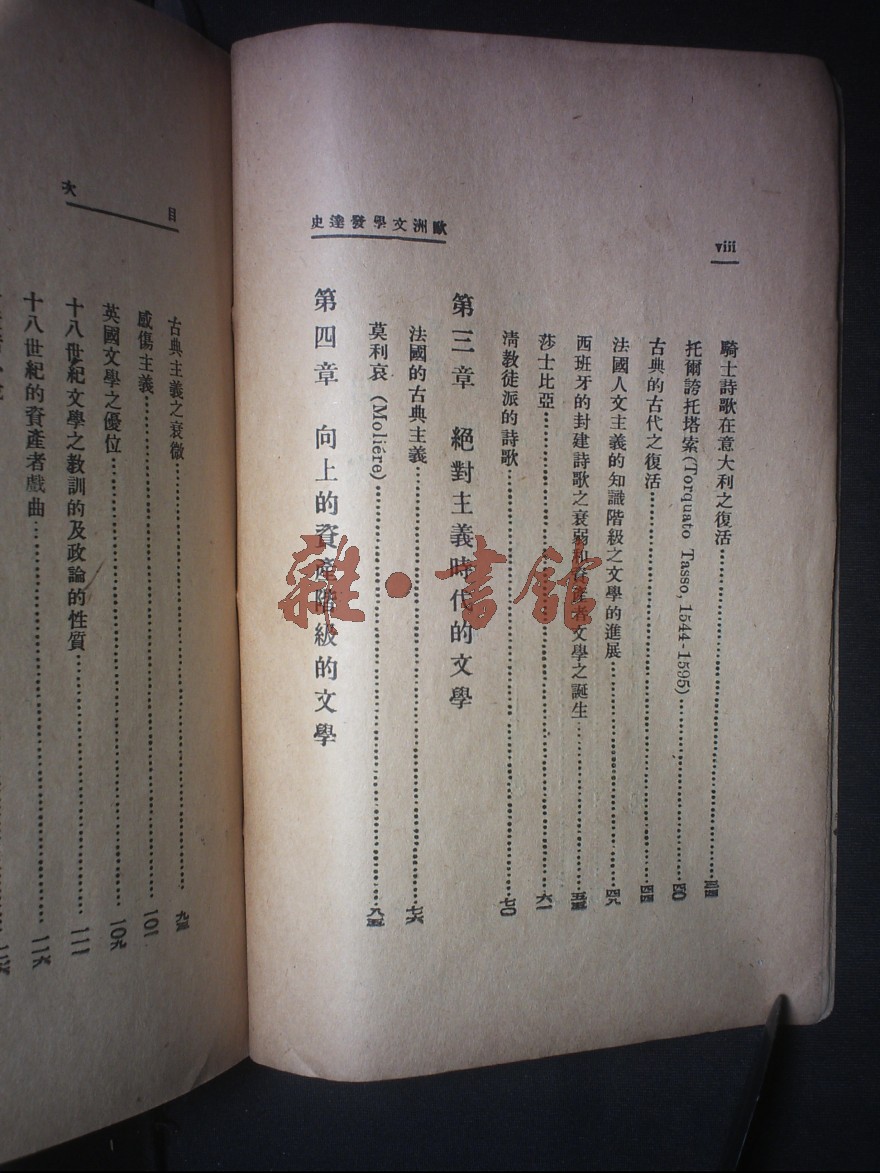 viii
歐洲文學發達史
騎士詩歌在意大利之復活……三四
托爾誇托塔索(Torquato Tasso, 1544-1595)……四〇
古典的古代之復活……四四
法國人文主義的知識階級之文學的進展……四九
西班牙的封建詩歌之衰弱和資產者文學之誕生……
莎士比亞……六一
淸教徒派的詩歌……七〇
第三章 絕對主義時代的文學
法國的古典主義……七六
莫利哀 (Moliére)……
第四章 向上的資產階級的文學
目次
古典主義之衰微……
感傷主義……一〇一
英國文學之優位……一〇九
十八世紀文學之教訓的及政論的性質……一一一
十八世紀的資產者戲曲……一一六
雜·書館